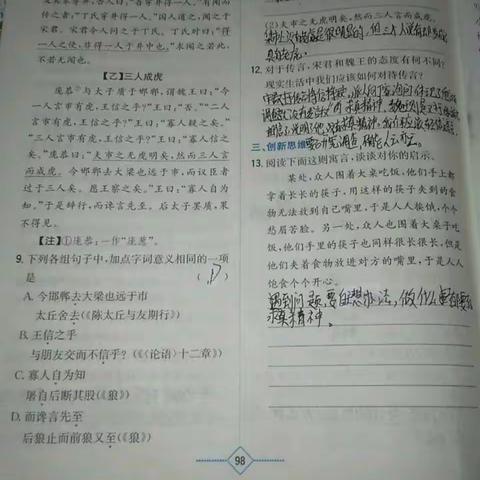 传之者,"丁氏穿井得一人。"国人道之,闻之于
宋君。宋君令人问之于丁氏。丁氏对曰:"得
一人之使,非得一人于井中也。"求闻之若此,
不若无闻也。
【乙】三人成虎
庞恭①与太子质于邯郸,谓魏王曰:"今
一人言市有虎,王信之乎?"王曰:"否。""二人
言市有虎,王信之乎?"王曰:"寡人疑之矣。"
"三人言市有虎,王信之乎?"王曰:"寡人信之
矣。"庞恭曰:"夫市之无虎明矣,然而三人言
而成虎。今邯郸去大梁也远于市,而议臣者
过于三人矣。愿王察之矣。"王曰:"寡人自为
知。"于是辞行,而谗言先至。后太子罢质,果
不得见。
【注】①庞恭:一作"庞葱"。
9. 下列各组句子中,加点字词意义相同的一项
是 ( D )
A. 今邯郸去大梁也远于市
太丘舍去(《陈太丘与友期行》)
B. 王信之乎
与朋友交而不信乎?(《〈论语〉十二章》)
C. 寡人自为知
屠自后断其股(《狼》)
D. 而谗言先至
后狼止而前狼又至(《狼》)
(2)夫市之无虎明矣,然而三人言而成虎。
12. 对于传言,宋君和魏王的态度有何不同?
现实生活中我们应该如何对待传言?
三、创新思维
13. 阅读下面这则寓言,谈谈对你的启示。
某处,众人围着大桌吃饭,他们手上都
拿着长长的筷子,用这样的筷子夹到的食
物无法放到自己嘴里,于是人人挨饿,个个
愁眉苦脸。另一处,众人也围着大桌子吃
饭,他们手里的筷子也同样很长很长,但是
他们夹着食物放进对方的嘴里,于是人人
饱食个个开心。
遇到问题,要自己想办法,做什么事都要有
求真精神。
98